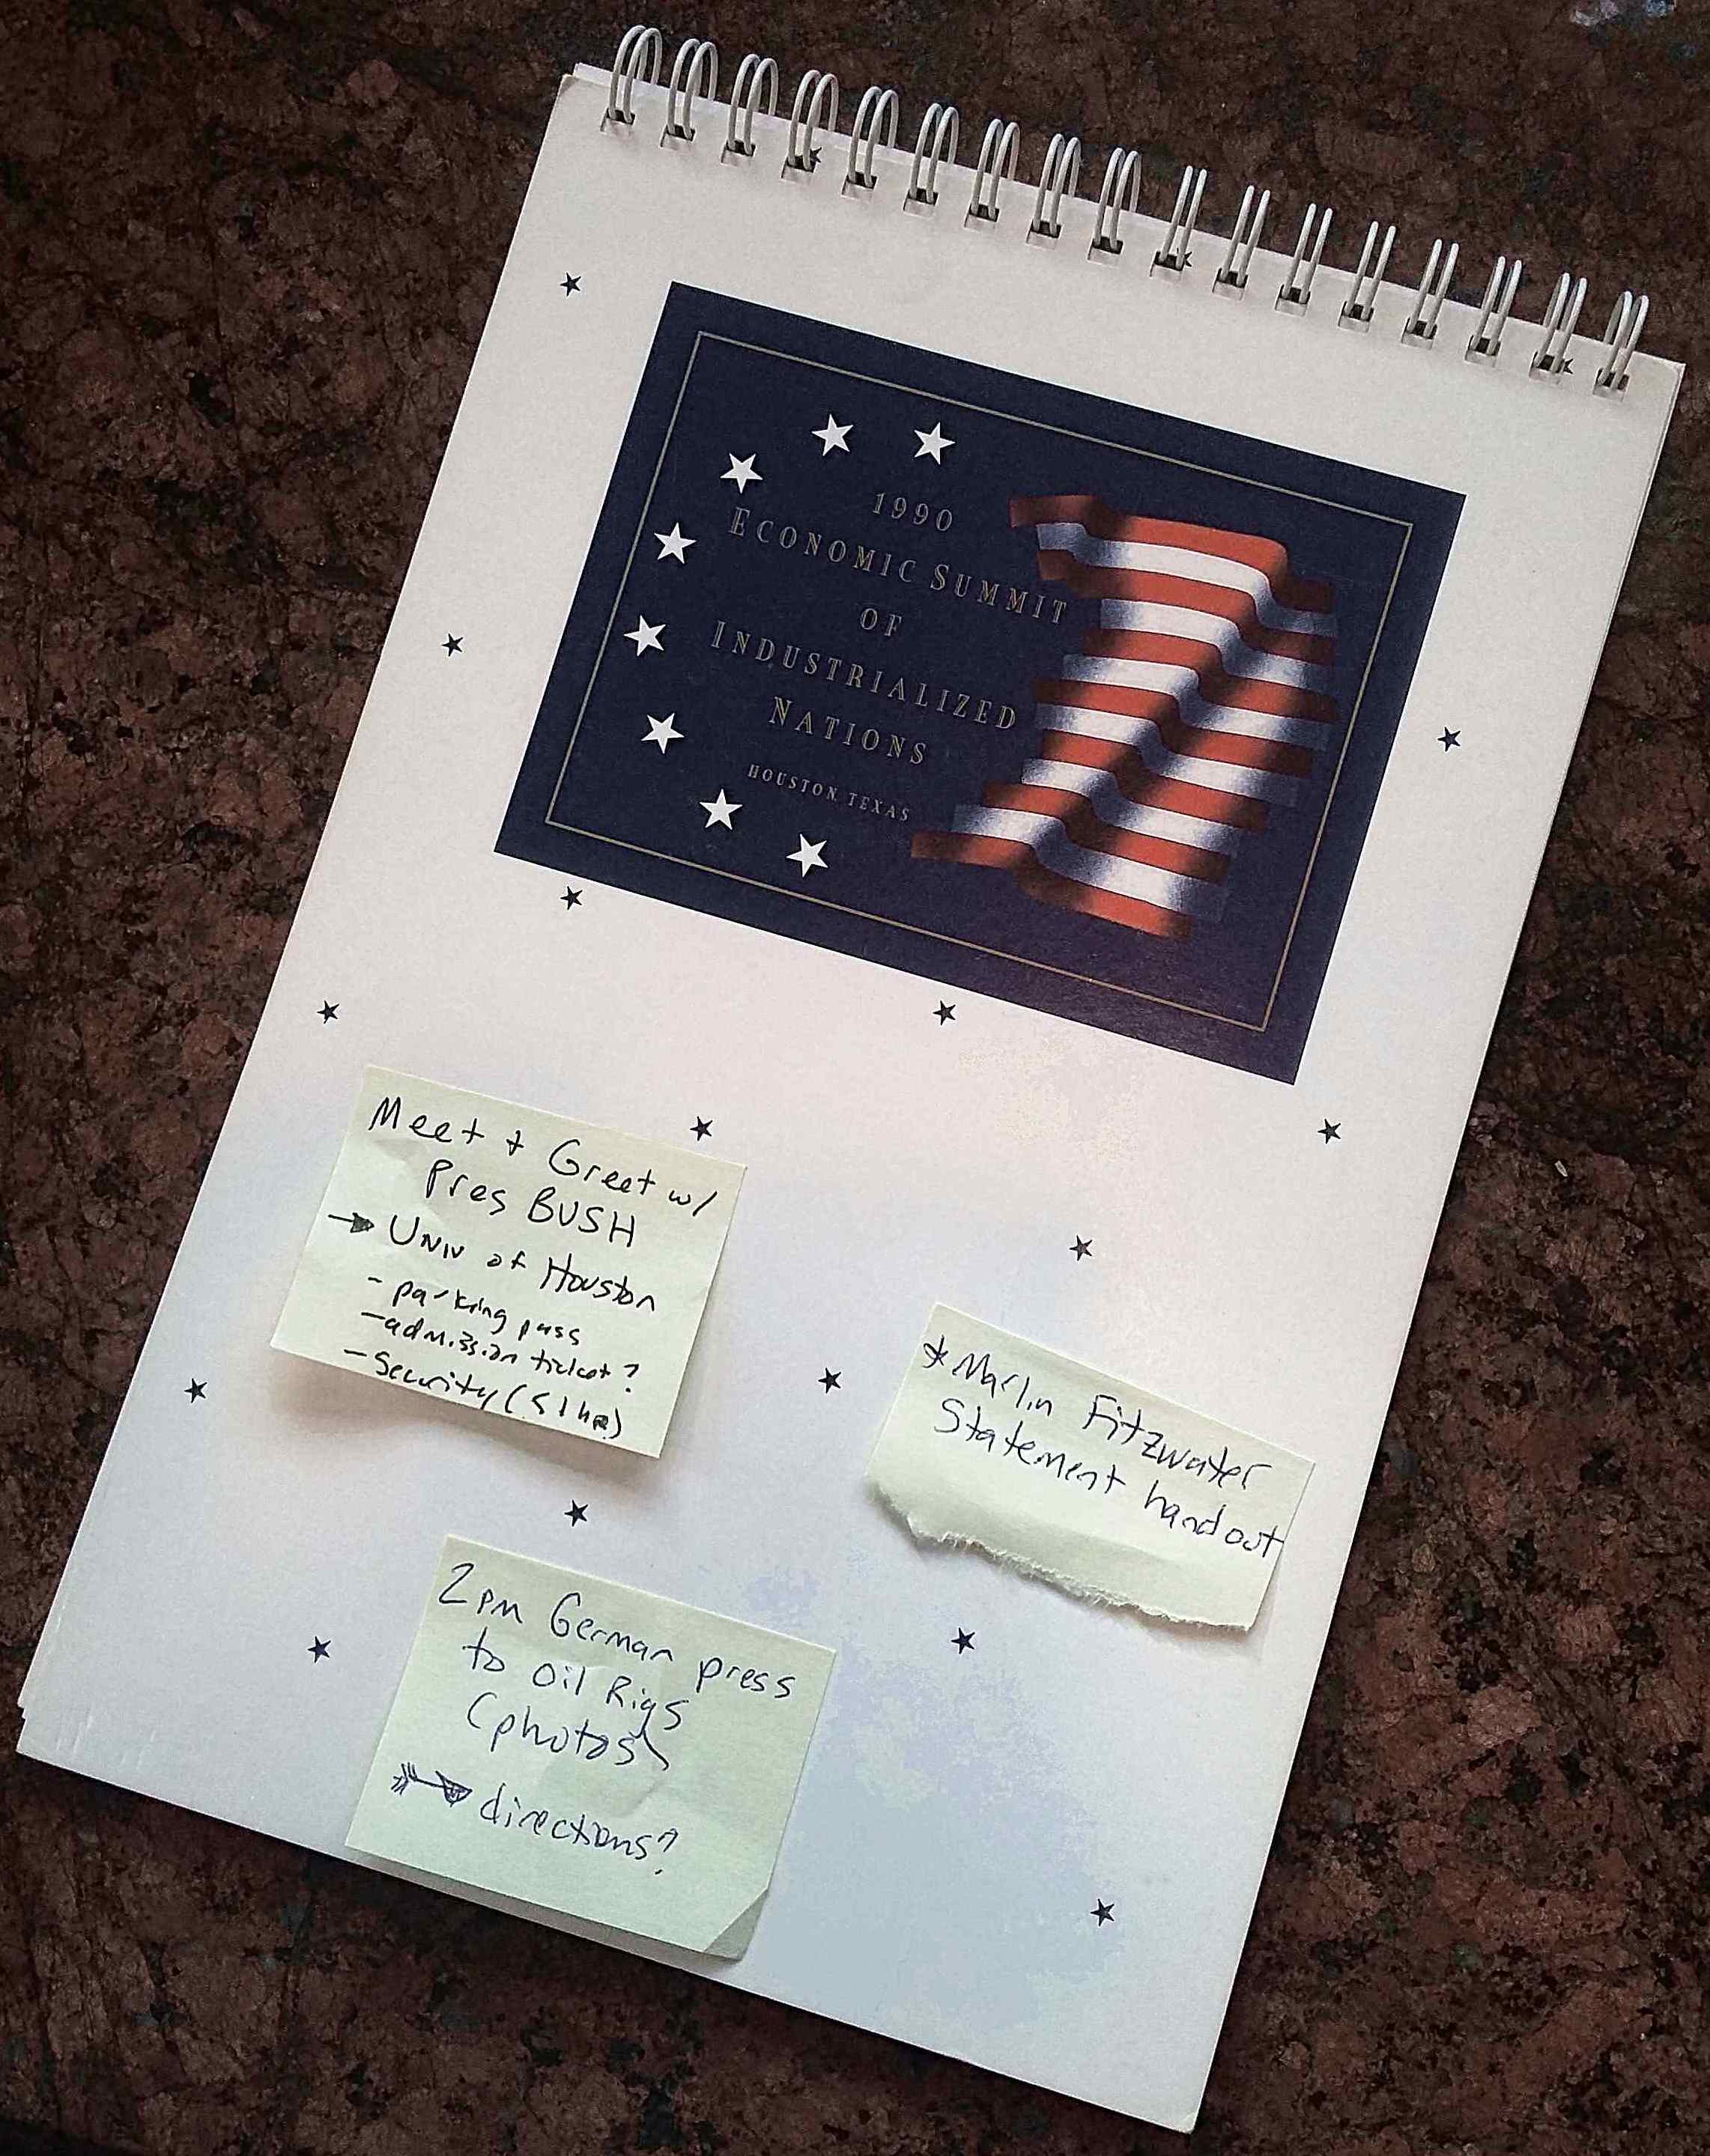 1990
ECONOMIC SUMMIT
OF
INDUSTRIALIZED
NATIONS
HOUSTON, TEXAS
Meet + Greet w/
Pres BUSH
→ UNIV of Houston
- parking pass
- admission ticket?
- Security (
* Marlin Fitzwater
Statement handout
2 pm German press
to Oil Rigs
(photos)
→ directions?